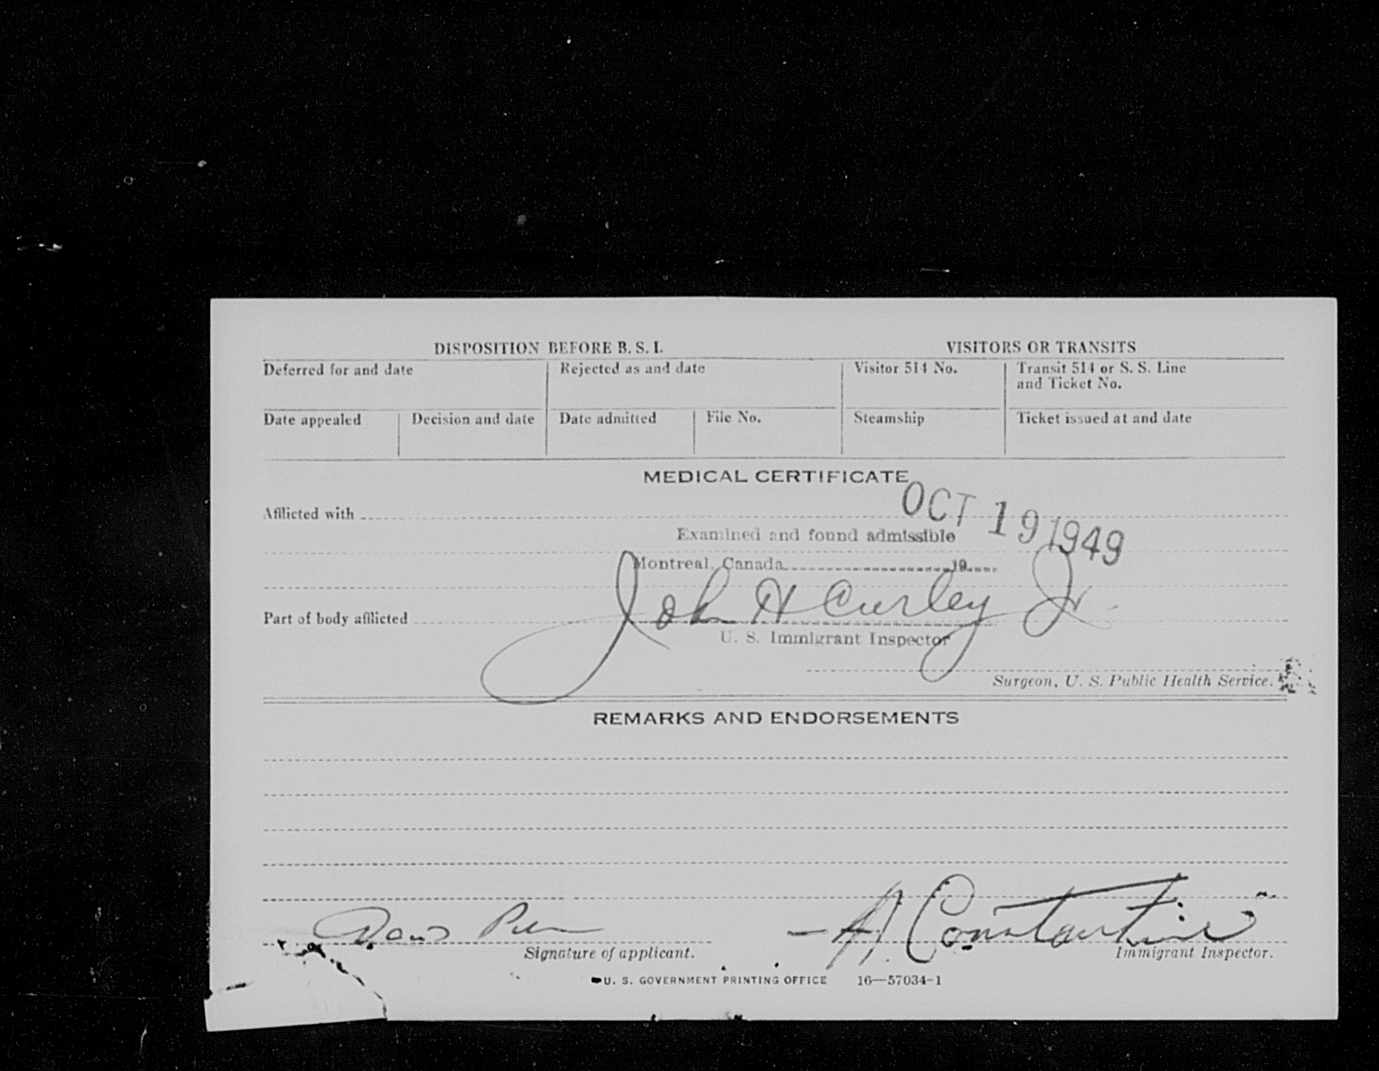 DISPOSITION BEFORE B. S. I.
VISITORS OR TRANSITS
Deferred for and date
Rejected as and date
Visitor 514 No.
Transit 514 or S. S. Line
and Ticket No.
Date appealed
Decision and date
Date admitted
File No.
Steamship
Ticket issued at and date
MEDICAL CERTIFICATE
OCT 19 1949
Afflicted with
Examined and found admissible
Montreal, Canada 19
John H Curley Jr
Part of body afflicted
U. S. Immigrant Inspector
Surgeon, U. S. Public Health Service.
REMARKS AND ENDORSEMENTS
A. Constantine
Signature of applicant.
Immigrant Inspector.
U. S. GOVERNMENT PRINTING OFFICE 16—57034-1